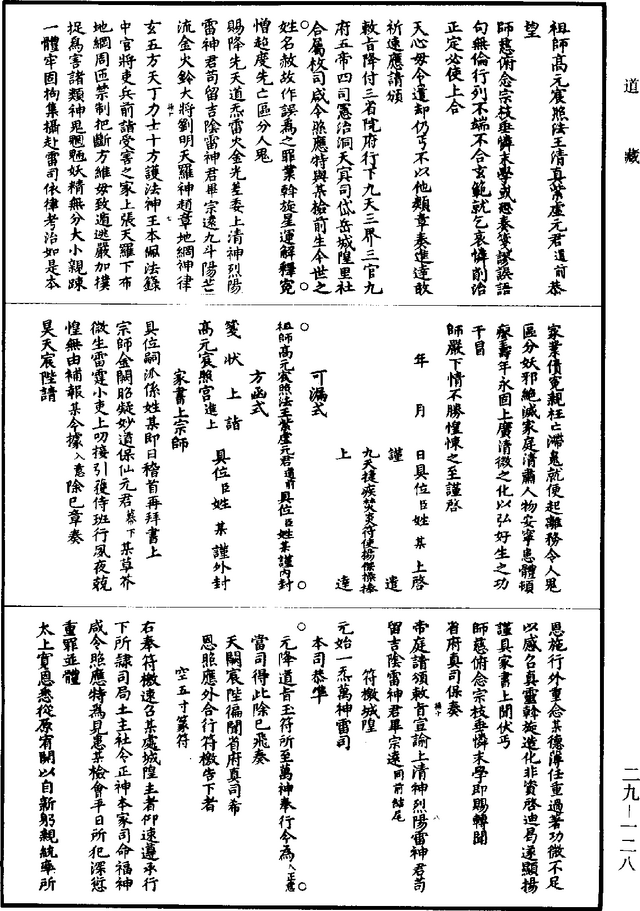 道藏
祖師高元宸照法王清真紫虛元君道前恭
望
師慈俯念宗枝垂憐末學或恐奏箋謬誤語
句無倫行列不端不合玄範就乞哀憐削治
正定必使上合
天心毋令遣却仍丐不以他類章奏進達敢
祈速應請頒
敕旨降付三省院府行下九天三界三官九
府五帝四司憲治洞天真司岱岳城隍里社
合屬枚司咸令照應特與某檢前生今世之
姓名赦故作誤為之罪業斡旋星運解釋冤
憎超度先亡區分人鬼
賜降先天道炁雷火金光差委上清神烈陽
雷神君苟留吉陰雷神君畢宗遠九斗陽芒
流金火鈴大將劉明天羅神趙章地網神律
玄五方天丁力士十方護法神王本佩法籙
中官將吏兵前詣受害之家上張天羅下布
地網周匝禁制把斷方維毋致逍逃嚴加撲
捉為害諸類神鬼魍魎妖精無分大小親踈
一體牢固拘集攝赴雷司依律考治如是本
家業債冤親枉亡滯鬼就便起離務令人鬼
區分妖邪絕滅家庭清肅人物安寧患體頓
瘳壽年永固上廣清微之化以弘好生之功
干冒
師嚴下情不勝惶悚之至謹啓
年月日具位臣姓某上啓
謹遣
九天捷疾焚炎符使楊傑操捧
上達
可漏式
祖師高元宸照法王紫虛元君道前具位臣姓某謹內封
方函式
箋狀上詣
高元宸照宮進上具位臣姓某謹外封
家書上宗師
具位嗣派係姓某即日稽首再拜書上
宗師金闕昭凝妙道保仙元君慕下某草芥
微生雷霆小吏上叨接引獲侍班行夙夜兢
惶無由補報某今據入意除已章奏
昊天宸陛請
恩施行外重念某德薄任重過著功微不足
以感召真靈斡旋造化非資啓迪曷遂顯揚
謹具家書上聞伏丐
師慈俯念宗枝垂憐末學即賜轉聞
省府真司保奏
帝庭請頒敕旨宣諭上清神烈陽雷神君苟
留吉陰雷神君畢宗遠同前結尾
符檄城隍
元始一炁萬神雷司
本司恭準
元降道旨玉符所至萬神奉行今為入正意
當司得此除已飛奏
天闕宸陛徧聞省府真司希
恩照應外合行符檄告下者
空五寸篆符
右奉符檄速召某處城隍主者仰速遵承行
下所隸司局土主社令正神本家司命福神
咸令照應特為見患某檢會平日所犯深愆
重罪並體
太上寬恩悉從原宥開以自新躬親統率所
二九—一二八